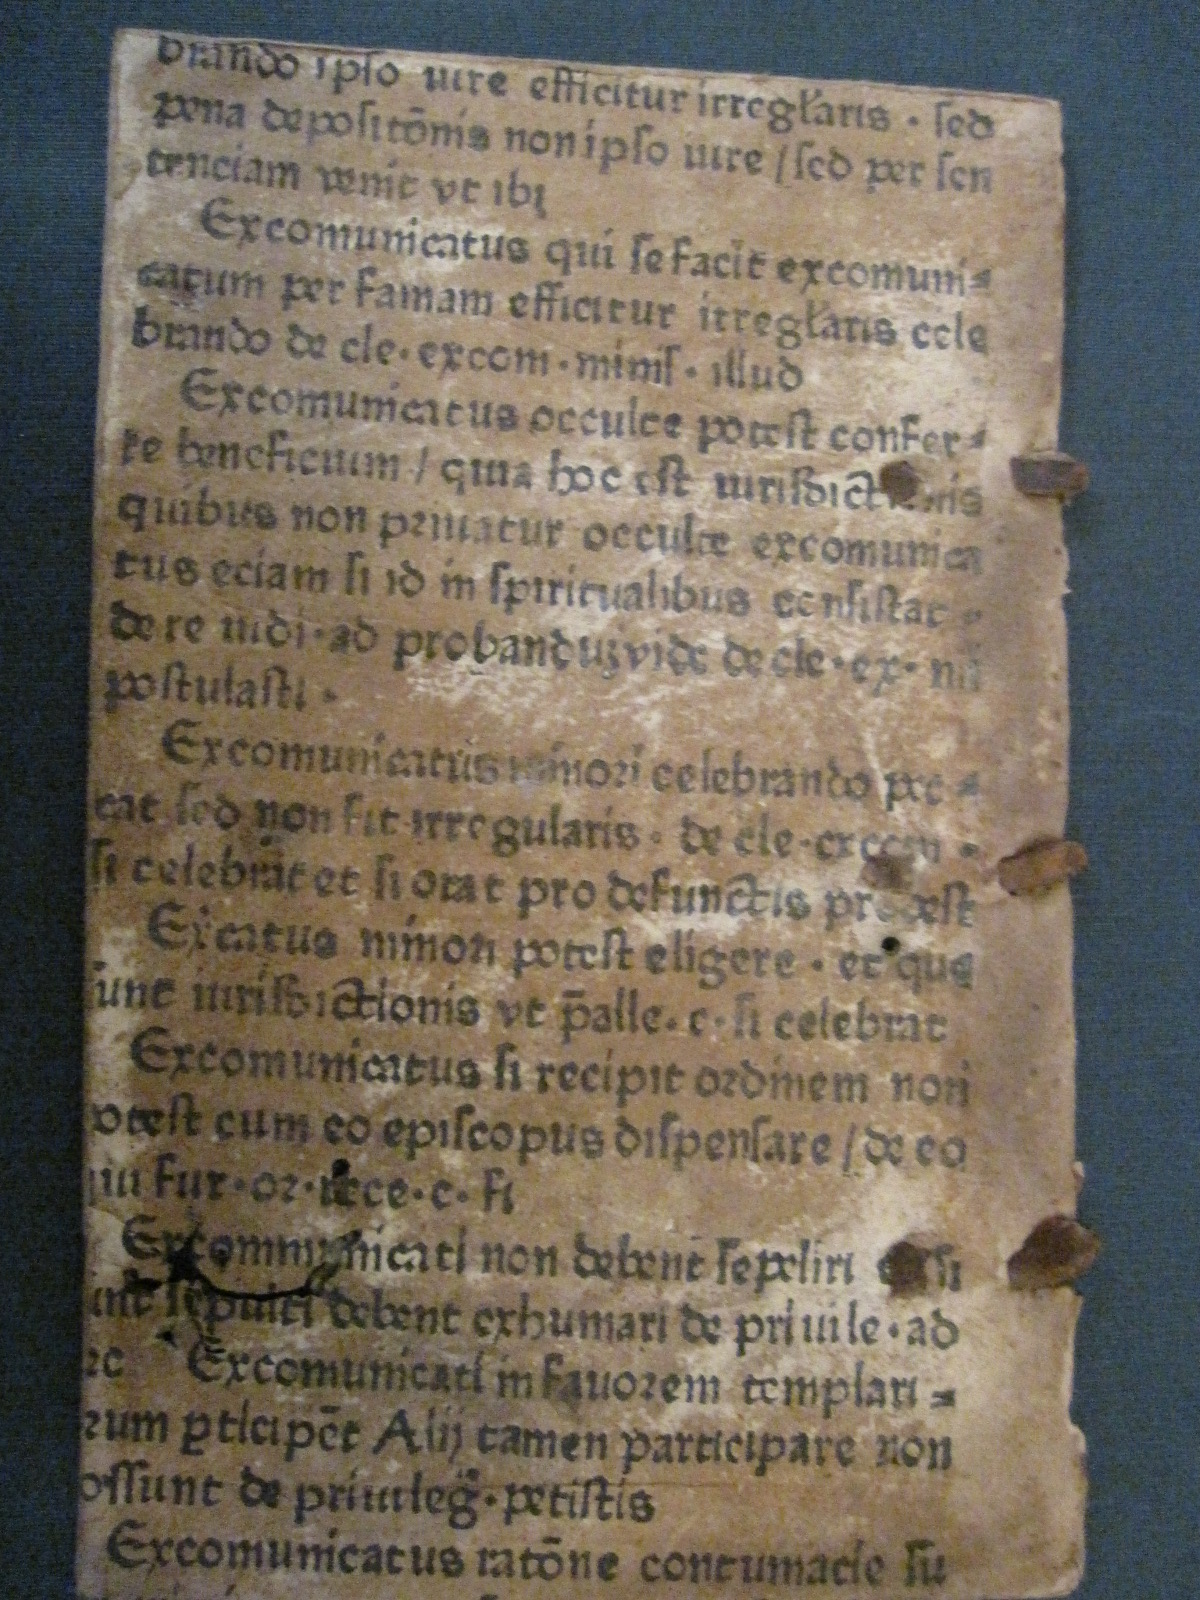 brando ipso iure efficitur irregłaris · sed
pena depositōnis non ipso iure / sed per sen
tenciam venit vt ibi
Excomunicatus qui se facit excomuni⸗
catum per famam efficitur irregłaris cele
brando de cle · excom · minis · illud
Excomunicatus occulte potest confer⸗
re beneficium / quia hoc est iurisdict
quibus non priuatur occulte excomunica
tus eciam si id in spiritualibus consistat ·
de re iudi · ad probanduʒ vide de cle · ex · mi
postulasti ·
Excomunicatus minori celebrando pec⸗
cat sed non fit irregularis · de cle · excom ·
si celebrat et si orat pro defunctis prodest
Ex'catus minori potest eligere · et que
unt iurisdictionis vt p̄alle · c · si celebrat
Excomunicatus si recipit ordinem non
otest cum eo episcopus dispensare / de eo
ui fur · or · rece · c · si
Excommunicati non debent sepeliri si
int sepulti debent exhumari de priuile · ad
ec Excomunicati in fauorem templari⸗
rum ꝑticipēt Alij tamen participare non
ossunt de priuileḡ · petistis
Excomunicatus ratōne contumacie su